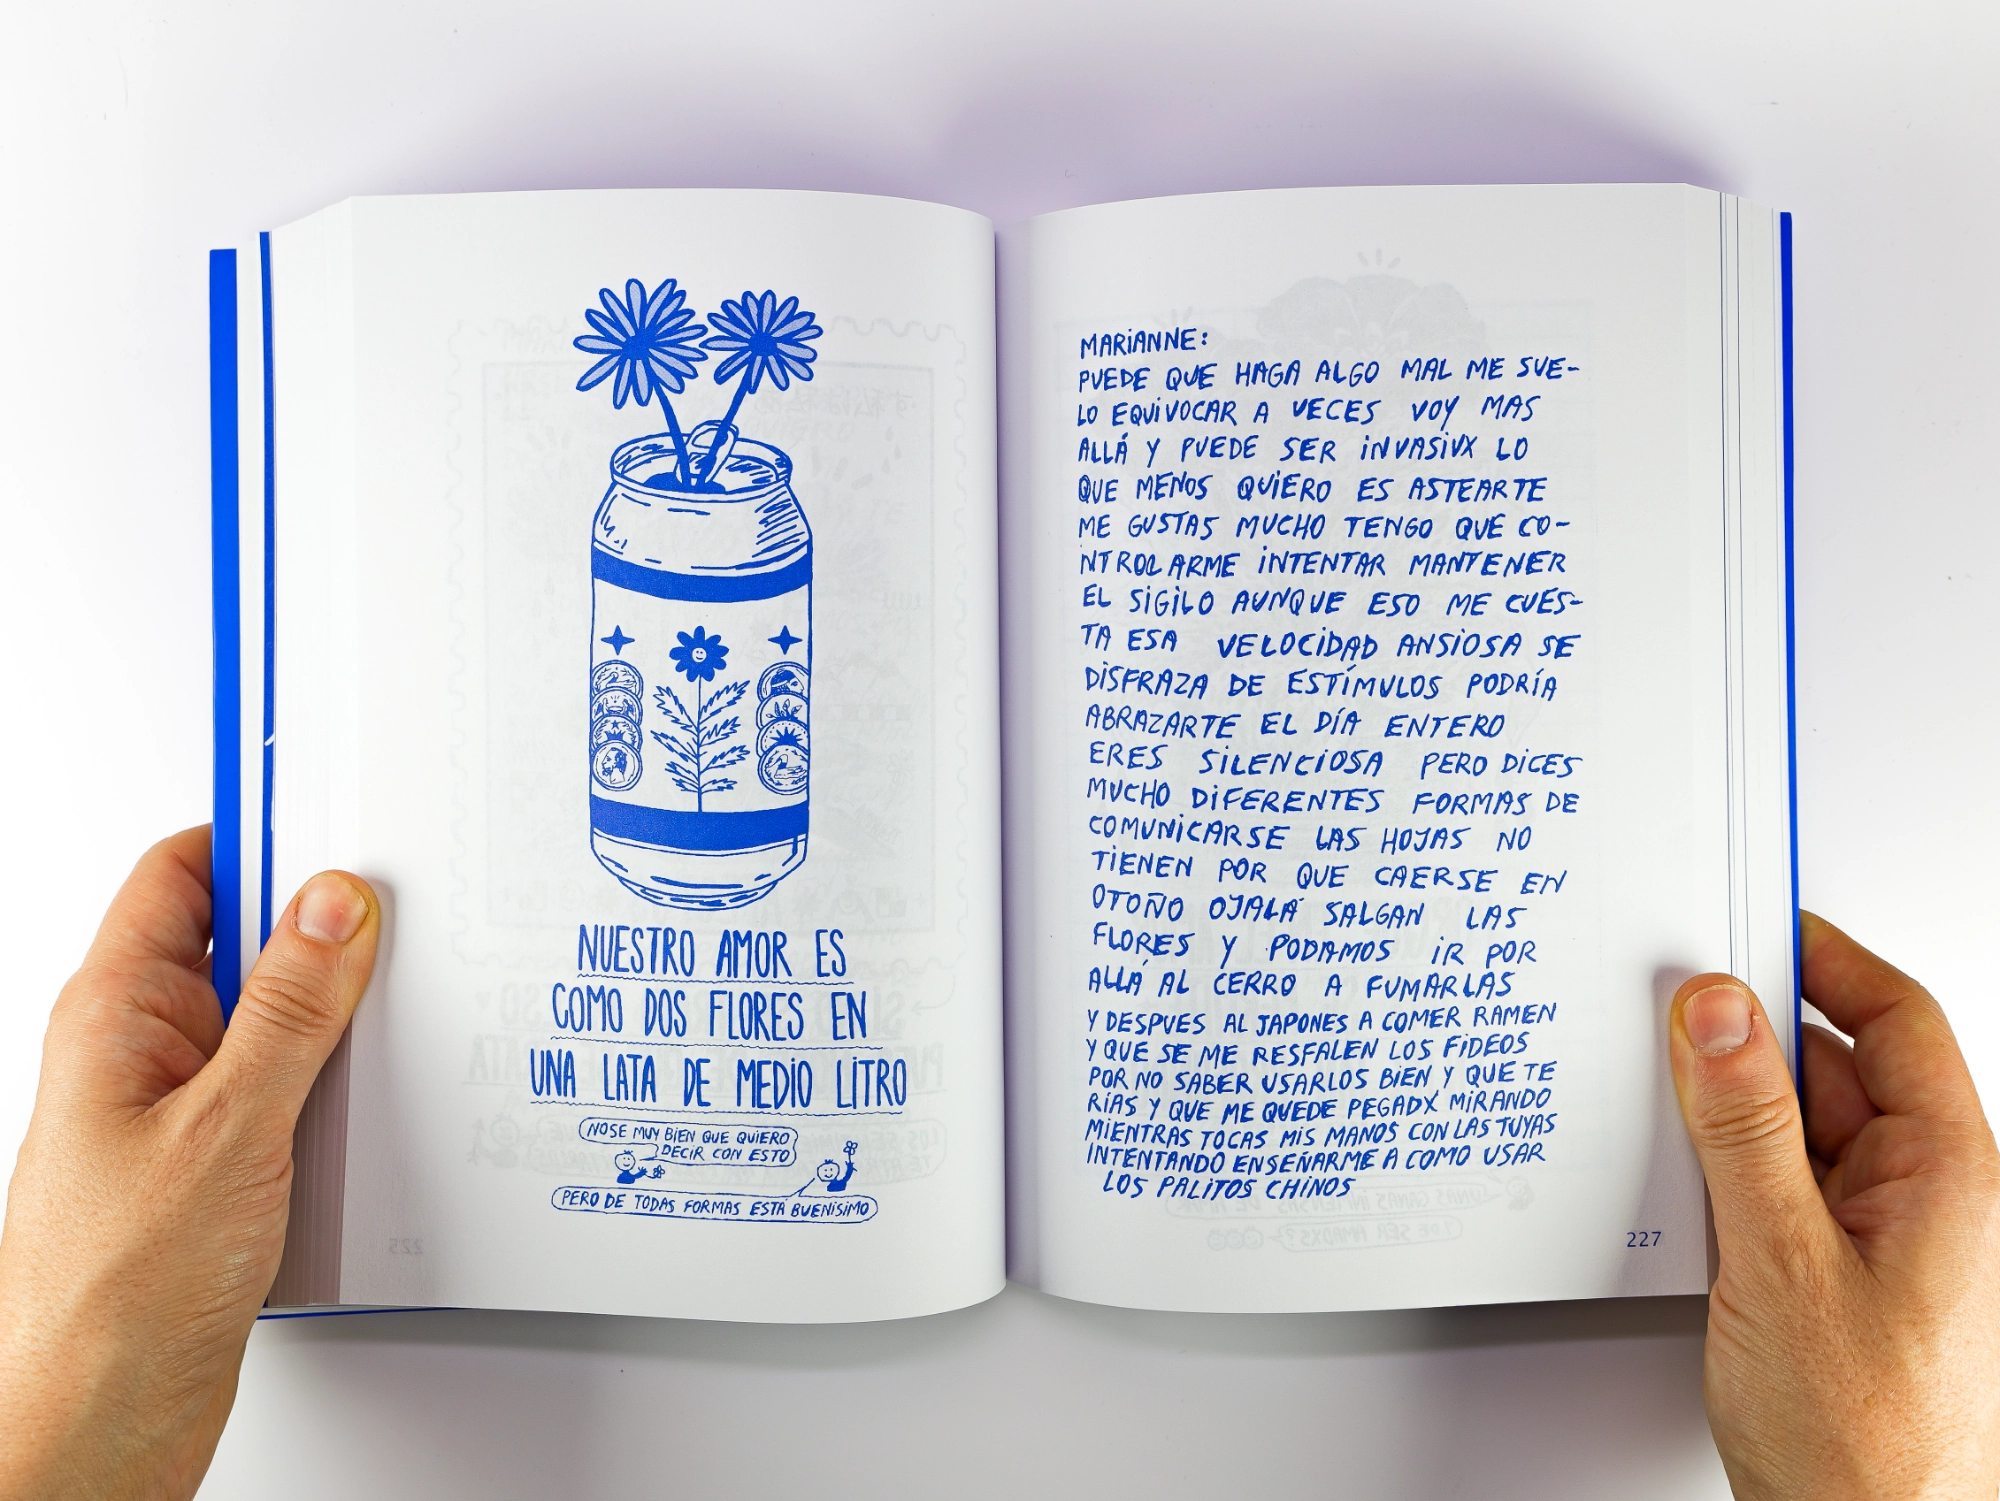 NUESTRO AMOR ES
COMO DOS FLORES EN
UNA LATA DE MEDIO LITRO
NOSE MUY BIEN QUE QUIERO
DECIR CON ESTO
PERO DE TODAS FORMAS ESTÁ BUENÍSIMO
225
MARIANNE:
PUEDE QUE HAGA ALGO MAL ME SUE-
LO EQUIVOCAR A VECES VOY MAS
ALLÁ Y PUEDE SER INVASIVX LO
QUE MENOS QUIERO ES ASTEARTE
ME GUSTAS MUCHO TENGO QUE CO-
NTROLARME INTENTAR MANTENER
EL SIGILO AUNQUE ESO ME CUES-
TA ESA VELOCIDAD ANSIOSA SE
DISFRAZA DE ESTÍMULOS PODRÍA
ABRAZARTE EL DÍA ENTERO
ERES SILENCIOSA PERO DICES
MUCHO DIFERENTES FORMAS DE
COMUNICARSE LAS HOJAS NO
TIENEN POR QUE CAERSE EN
OTOÑO OJALÁ SALGAN LAS
FLORES Y PODAMOS IR POR
ALLÁ AL CERRO A FUMARLAS
Y DESPUES AL JAPONES A COMER RAMEN
Y QUE SE ME RESFALEN LOS FIDEOS
POR NO SABER USARLOS BIEN Y QUE TE
RÍAS Y QUE ME QUEDE PEGADX MIRANDO
MIENTRAS TOCAS MIS MANOS CON LAS TUYAS
INTENTANDO ENSEÑARME A COMO USAR
LOS PALITOS CHINOS
227